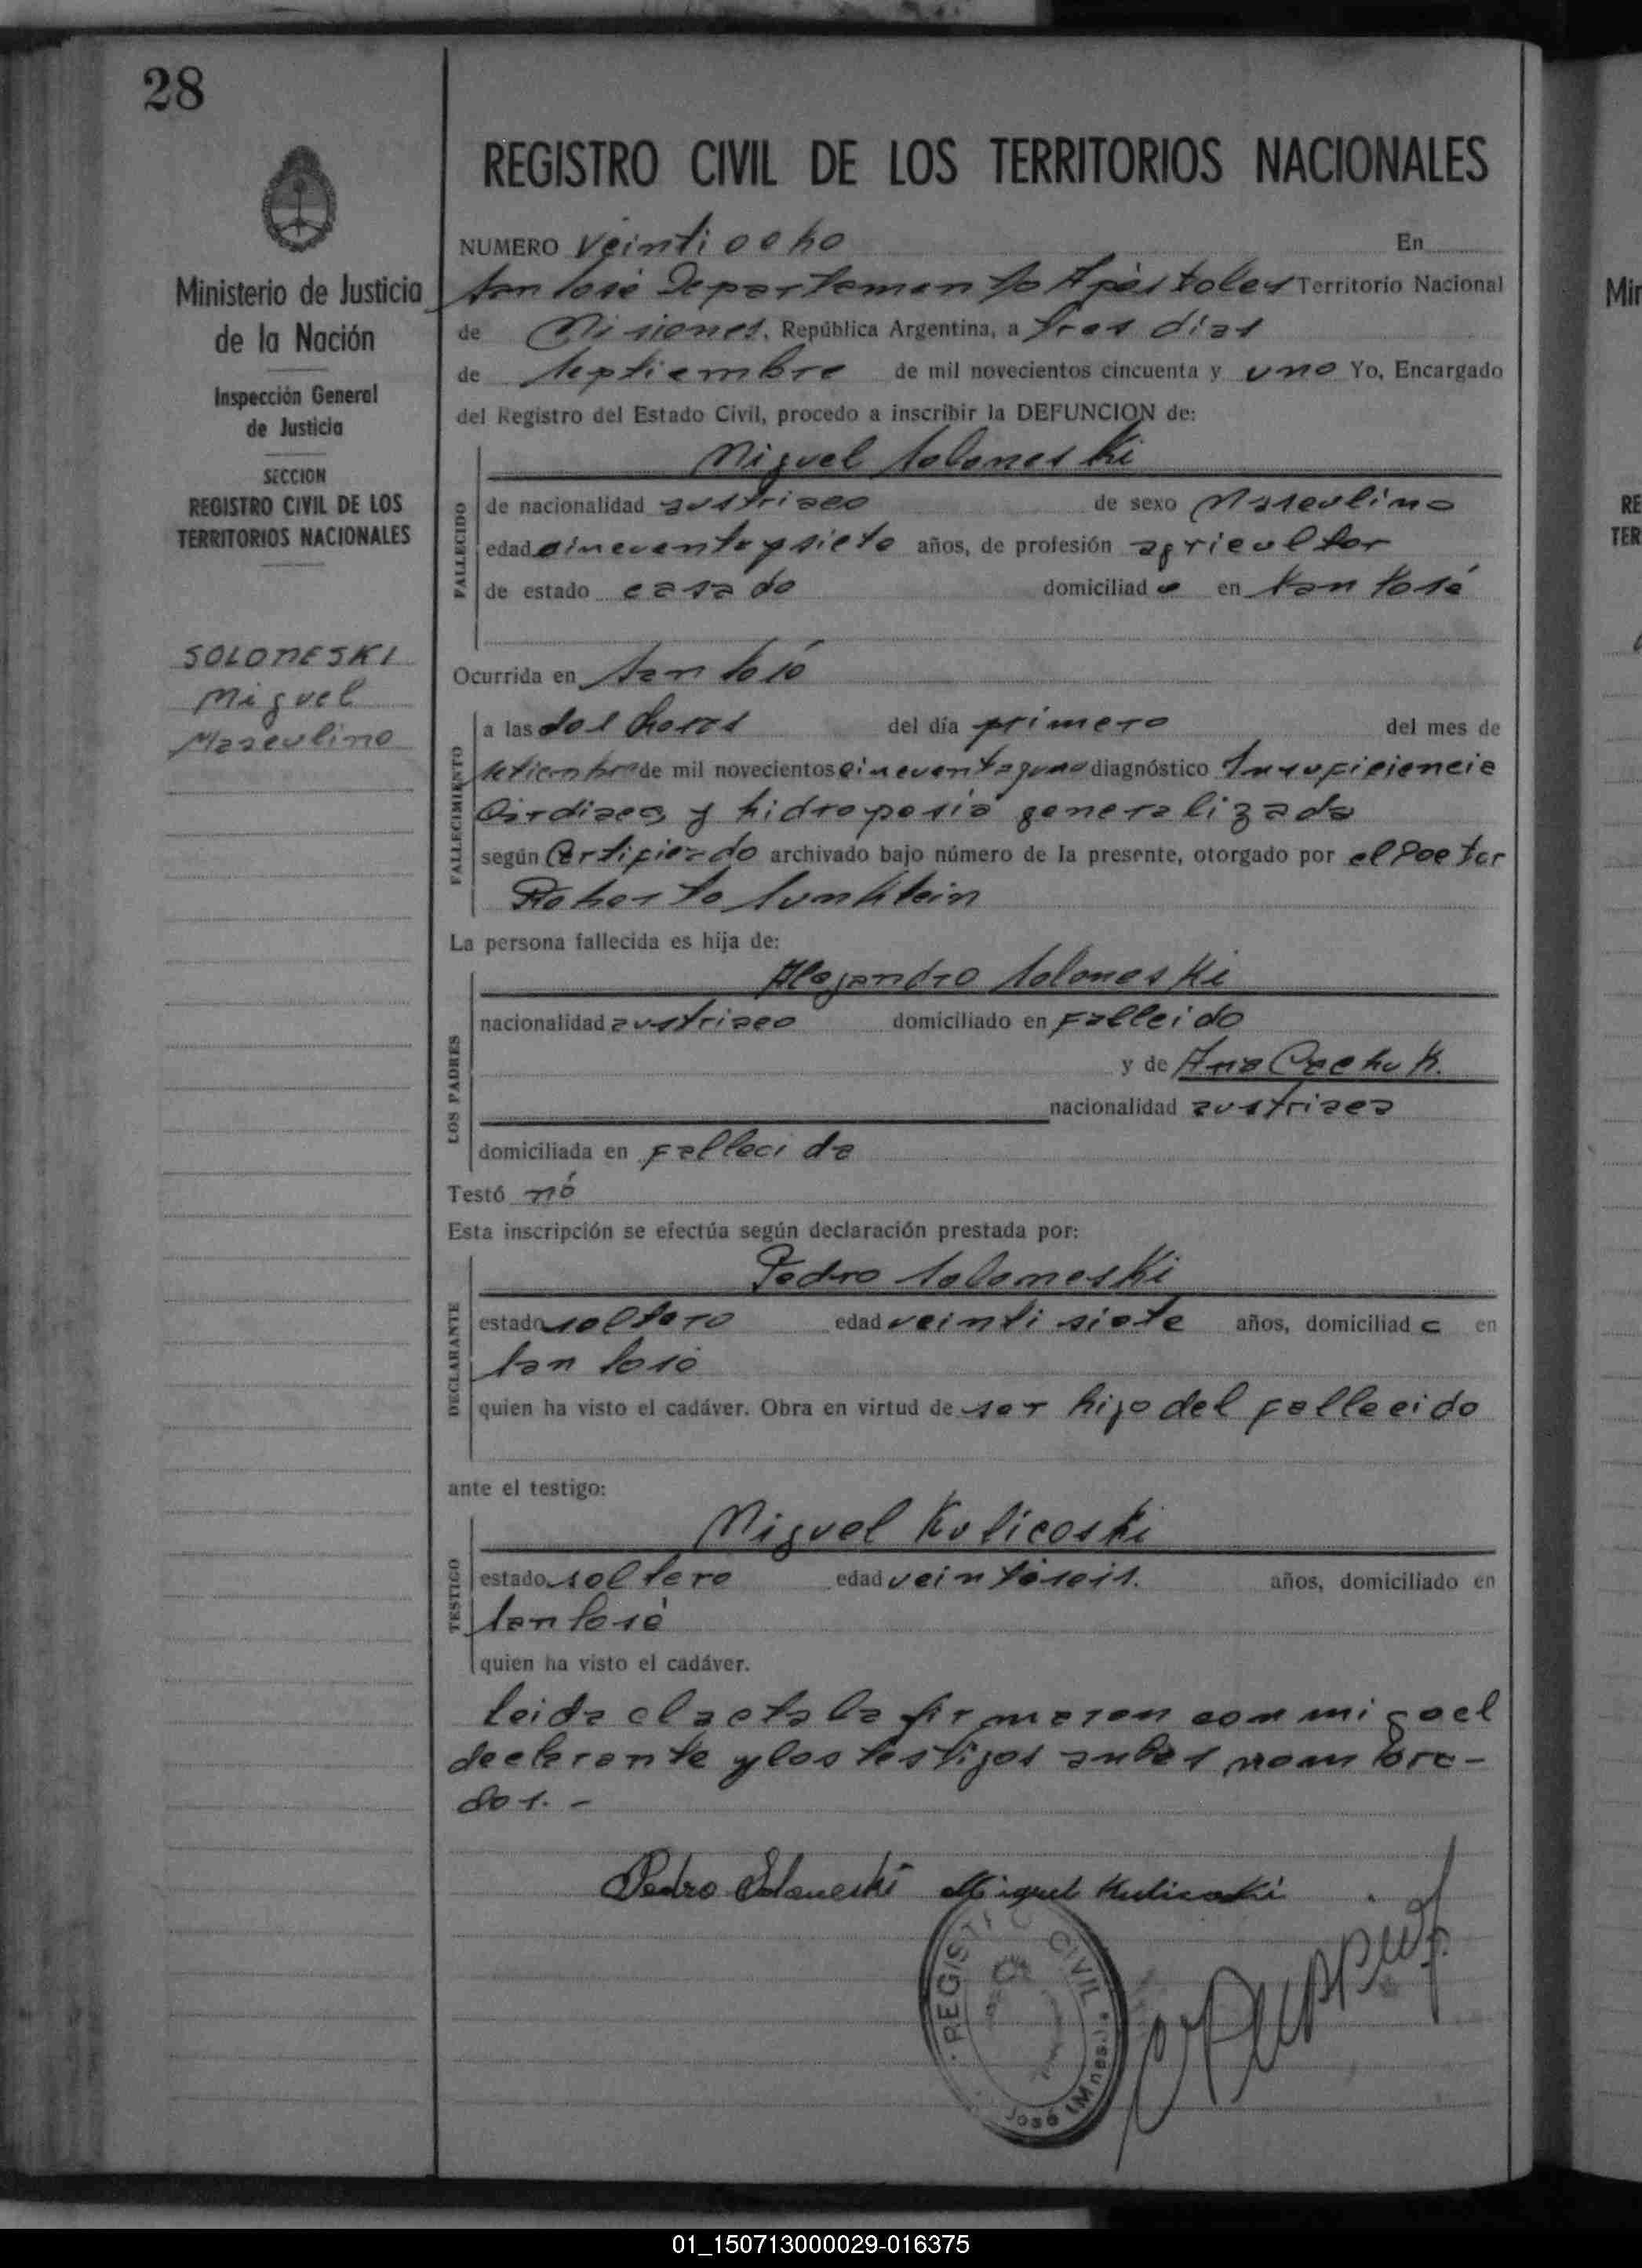 28
REGISTRO CIVIL DE LOS TERRITORIOS NACIONALES
Ministerio de Justicia
de la Nación
Inspección General
de Justicia
SECCION
REGISTRO CIVIL DE LOS
TERRITORIOS NACIONALES
SOLONESKI
Miguel
Masculino
NUMERO veintiocho En
San José Departamento Apóstoles Territorio Nacional
de Misiones, República Argentina, a tres días
de Septiembre de mil novecientos cincuenta y uno Yo, Encargado
del Registro del Estado Civil, procedo a inscribir la DEFUNCION de:
Miguel Soloneski
FALLECIDO
de nacionalidad austriaco de sexo Masculino
edad cincuenta y siete años, de profesión agricultor
de estado casado domiciliad o en San José
Ocurrida en San José
FALLECIMIENTO
a las dos horas del día primero del mes de
Setiembre de mil novecientos cincuenta y uno diagnóstico Insuficiencia
Cardiaca y hidropesia generalizada
según Certificado archivado bajo número de la presente, otorgado por el Doctor
Roberto
La persona fallecida es hija de:
LOS PADRES
Alejandro Soloneski
nacionalidad austriaco domiciliado en Falleido
y de Ana Cachuk.
nacionalidad austriaca
domiciliada en fallecida
Testó nó
Esta inscripción se efectúa según declaración prestada por:
DECLARANTE
Pedro Soloneski
estado soltero edad veintisiete años, domiciliad o en
San José
quien ha visto el cadáver. Obra en virtud de ser hijo del fallecido
ante el testigo:
TESTIGO
Miguel Kulicoski
estado soltero edad veintiseis. años, domiciliado en
San José
quien ha visto el cadáver.
Leida el acta la firmaron conmigo el
declarante y los testigos antes nombra-
dos. -
Pedro Soloneski Miguel Kulicoski
REGISTRO CIVIL
José (Mnes.)
Min
RE
TER
01_150713000029-016375